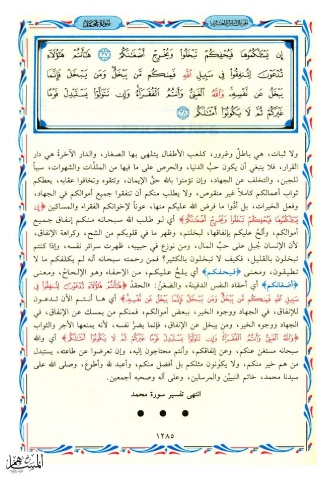 سورة محمد
إِن يَسْـَٔلْكُمُوهَا فَيُحْفِكُمْ تَبْخَلُوا۟ وَيُخْرِجْ أَضْغَـٰنَكُمْ ﴿٣٧﴾ هَـٰٓأَنتُمْ هَـٰٓؤُلَآءِ
تُدْعَوْنَ لِتُنفِقُوا۟ فِى سَبِيلِ ٱللَّهِ فَمِنكُم مَّن يَبْخَلُ وَمَن يَبْخَلْ فَإِنَّمَا
يَبْخَلُ عَن نَّفْسِهِۦ وَٱللَّهُ ٱلْغَنِىُّ وَأَنتُمُ ٱلْفُقَرَآءُ وَإِن تَتَوَلَّوْا۟ يَسْتَبْدِلْ قَوْمًا
غَيْرَكُمْ ثُمَّ لَا يَكُونُوٓا۟ أَمْثَـٰلَكُم ﴿٣٨﴾
ولا ثبات، هي باطلٌ وغرور، كلعب الأطفال يتلهى بها الصغار، والدار الآخرةُ هي دار
القرار، فلا ينبغي أن يكون حبُّ الدنيا، والحرص على ما فيها من الملذَّات والشهوات، سبباً
للجبن، والتخلف عن الجهاد، وإن تؤمنوا بالله حقَّ الإيمان، وتتقوه وتخافوا عقابه، يعطكم
ثواب أعمالكم كاملاً غير منقوص، ولا يطلب منكم أن تنفقوا جميع أموالكم في الجهاد،
وفعل الخيرات، بل أدُّوا ما فرض الله عليكم منها، عوناً لإخوانكم الفقراء والمساكين ﴿إِن
يَسْـَٔلْكُمُوهَا فَيُحْفِكُمْ تَبْخَلُوا۟ وَيُخْرِجْ أَضْغَـٰنَكُمْ﴾ أي لو طلب الله سبحانه منكم إنفاق جميع
أموالكم، وألحَّ عليكم بإنفاقها، لبخلتم، وظهر ما في قلوبكم من الشح، وكراهة الإنفاق،
لأن الإنسان جُبل على حبِّ المال، ومن نوزع في حبيبه، ظهرت سرائر نفسه، وإذا كنتم
تبخلون بالقليل، فكيف لا تبخلون بالكثير؟ فمن رحمته سبحانه أنه لم يكلفكم ما لا
تطيقون، ومعنى ﴿فيحفكم﴾ أي يلحَّ عليكم، من الإحفاء وهو الإلحاح، ومعنى
﴿أضغانكم﴾ أي أحقاد النفس الدفينة، والضغنُ: الحقدُ ﴿هَـٰٓأَنتُمْ هَـٰٓؤُلَآءِ تُدْعَوْنَ لِتُنفِقُوا۟ فِى
سَبِيلِ ٱللَّهِ فَمِنكُم مَّن يَبْخَلُ وَمَن يَبْخَلْ فَإِنَّمَا يَبْخَلُ عَن نَّفْسِهِۦ﴾ أي ها أنتم الآن تدعون
للإنفاق، في الجهاد ووجوه الخير، ببعض أموالكم، فمنكم من يمسك عن الإنفاق، في
الجهاد ووجوه الخير، ومن يبخل عن الإنفاق، فإنما يضرُّ نفسه، لأنه يمنعها الأجر والثواب
﴿وَٱللَّهُ ٱلْغَنِىُّ وَأَنتُمُ ٱلْفُقَرَآءُ وَإِن تَتَوَلَّوْا۟ يَسْتَبْدِلْ قَوْمًا غَيْرَكُمْ ثُمَّ لَا يَكُونُوٓا۟ أَمْثَـٰلَكُم﴾ أي والله
سبحانه مستغنٍ عنكم، وعن إنفاقكم، وأنتم محتاجون إليه، وإن تعرضوا عن طاعته، يستبدل
من هم خير منكم، ولا يكونون مثلكم بل أفضل منكم، وأعبد لله وأطوع، وصلى الله على
سيدنا محمد، خاتم النبيِّين والمرسلين، وعلى آله وصحبه أجمعين.
انتهى تفسير سورة محمد
١٢٨٥